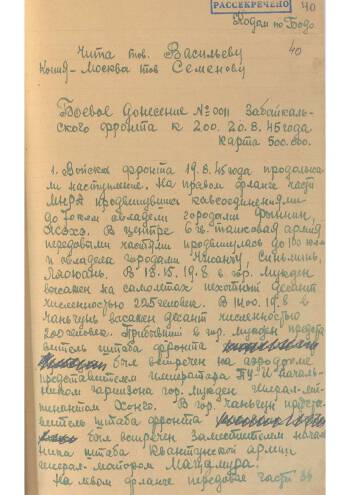 РАССЕКРЕЧЕНО
40
Кодом по Бодо
40
Чита тов. Васильеву
Копия-Москва тов Семенову
Боевое донесение № 0011 Забайкаль-
ского фронта к 2.00. 20.8.45 года
Карта 500.000.
1. Войска фронта 19.8.45 года продолжа-
ли наступление. На правом фланге части
МНРА продвинувшись кавсоединениями
до 70 км овладели городами Фыннин,
В центре 6 гв. танковая армия
передовыми частями продвинулась до 100 км
и овладела городами Синьминь,
Ляоюань. В 13.15. 19.8 в гор. Мукден
высажен на самолетах пехотный десант
численностью 225 человек. В 11.00. 19.8 в
Чанчунь высажен десант численностью
200 человек. Прибывший в гор. Мукден предста
витель штаба фронта
был встречен на аэродроме
представителем императора Пу-И и началь-
ником гарнизона гор. Мукден генерал-лей-
тенантом Хонго. В гор. Чанчунь предста-
витель штаба фронта
был встречен заместителем нача
ника штаба Квантунской армии
генерал-майором Мацумура.
На левом фланге передовые части 36